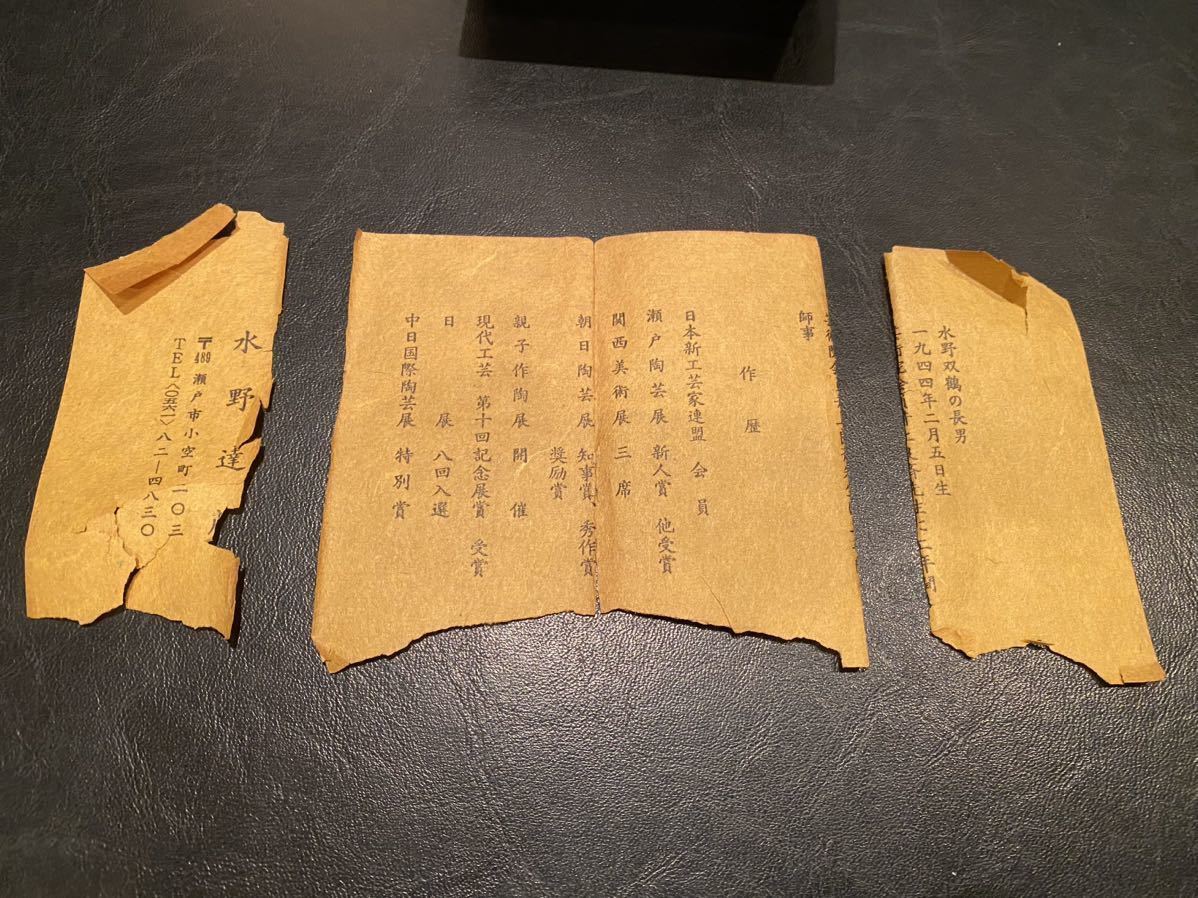 水野双鶴の長男
一九四四年二月五日生
師事
作歴
日本新工芸家連盟 会員
瀬戸陶芸展 新人賞 他受賞
関西美術展 三席
朝日陶芸展 知事賞、秀作賞
奨励賞
親子作陶展 開催
現代工芸・第十回記念展賞 受賞
日展 八回入選
中日国際陶芸展 特別賞
水野達
〒489 瀬戸市小空町一〇三
TEL〈〇五六一〉八二―四八三〇